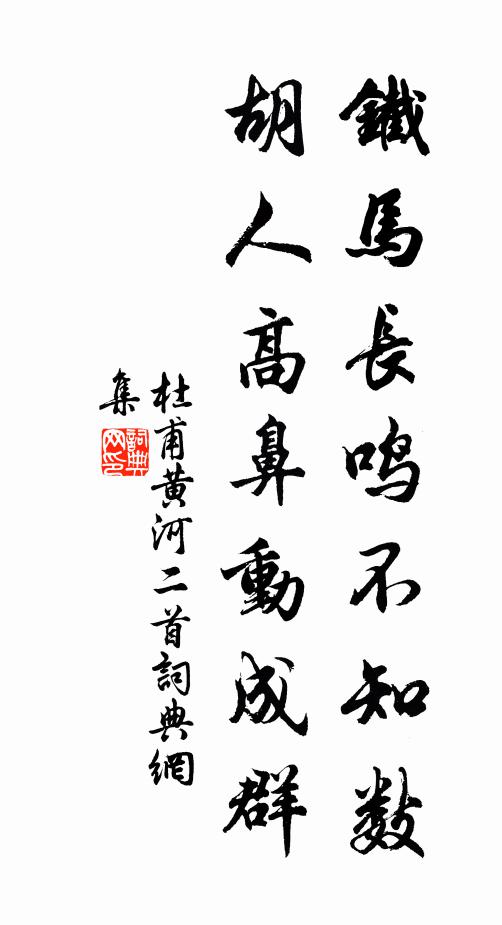 鐵馬長鳴不知數
胡人高鼻動成群
杜甫黄河二首詞典網
集
詞典
网印